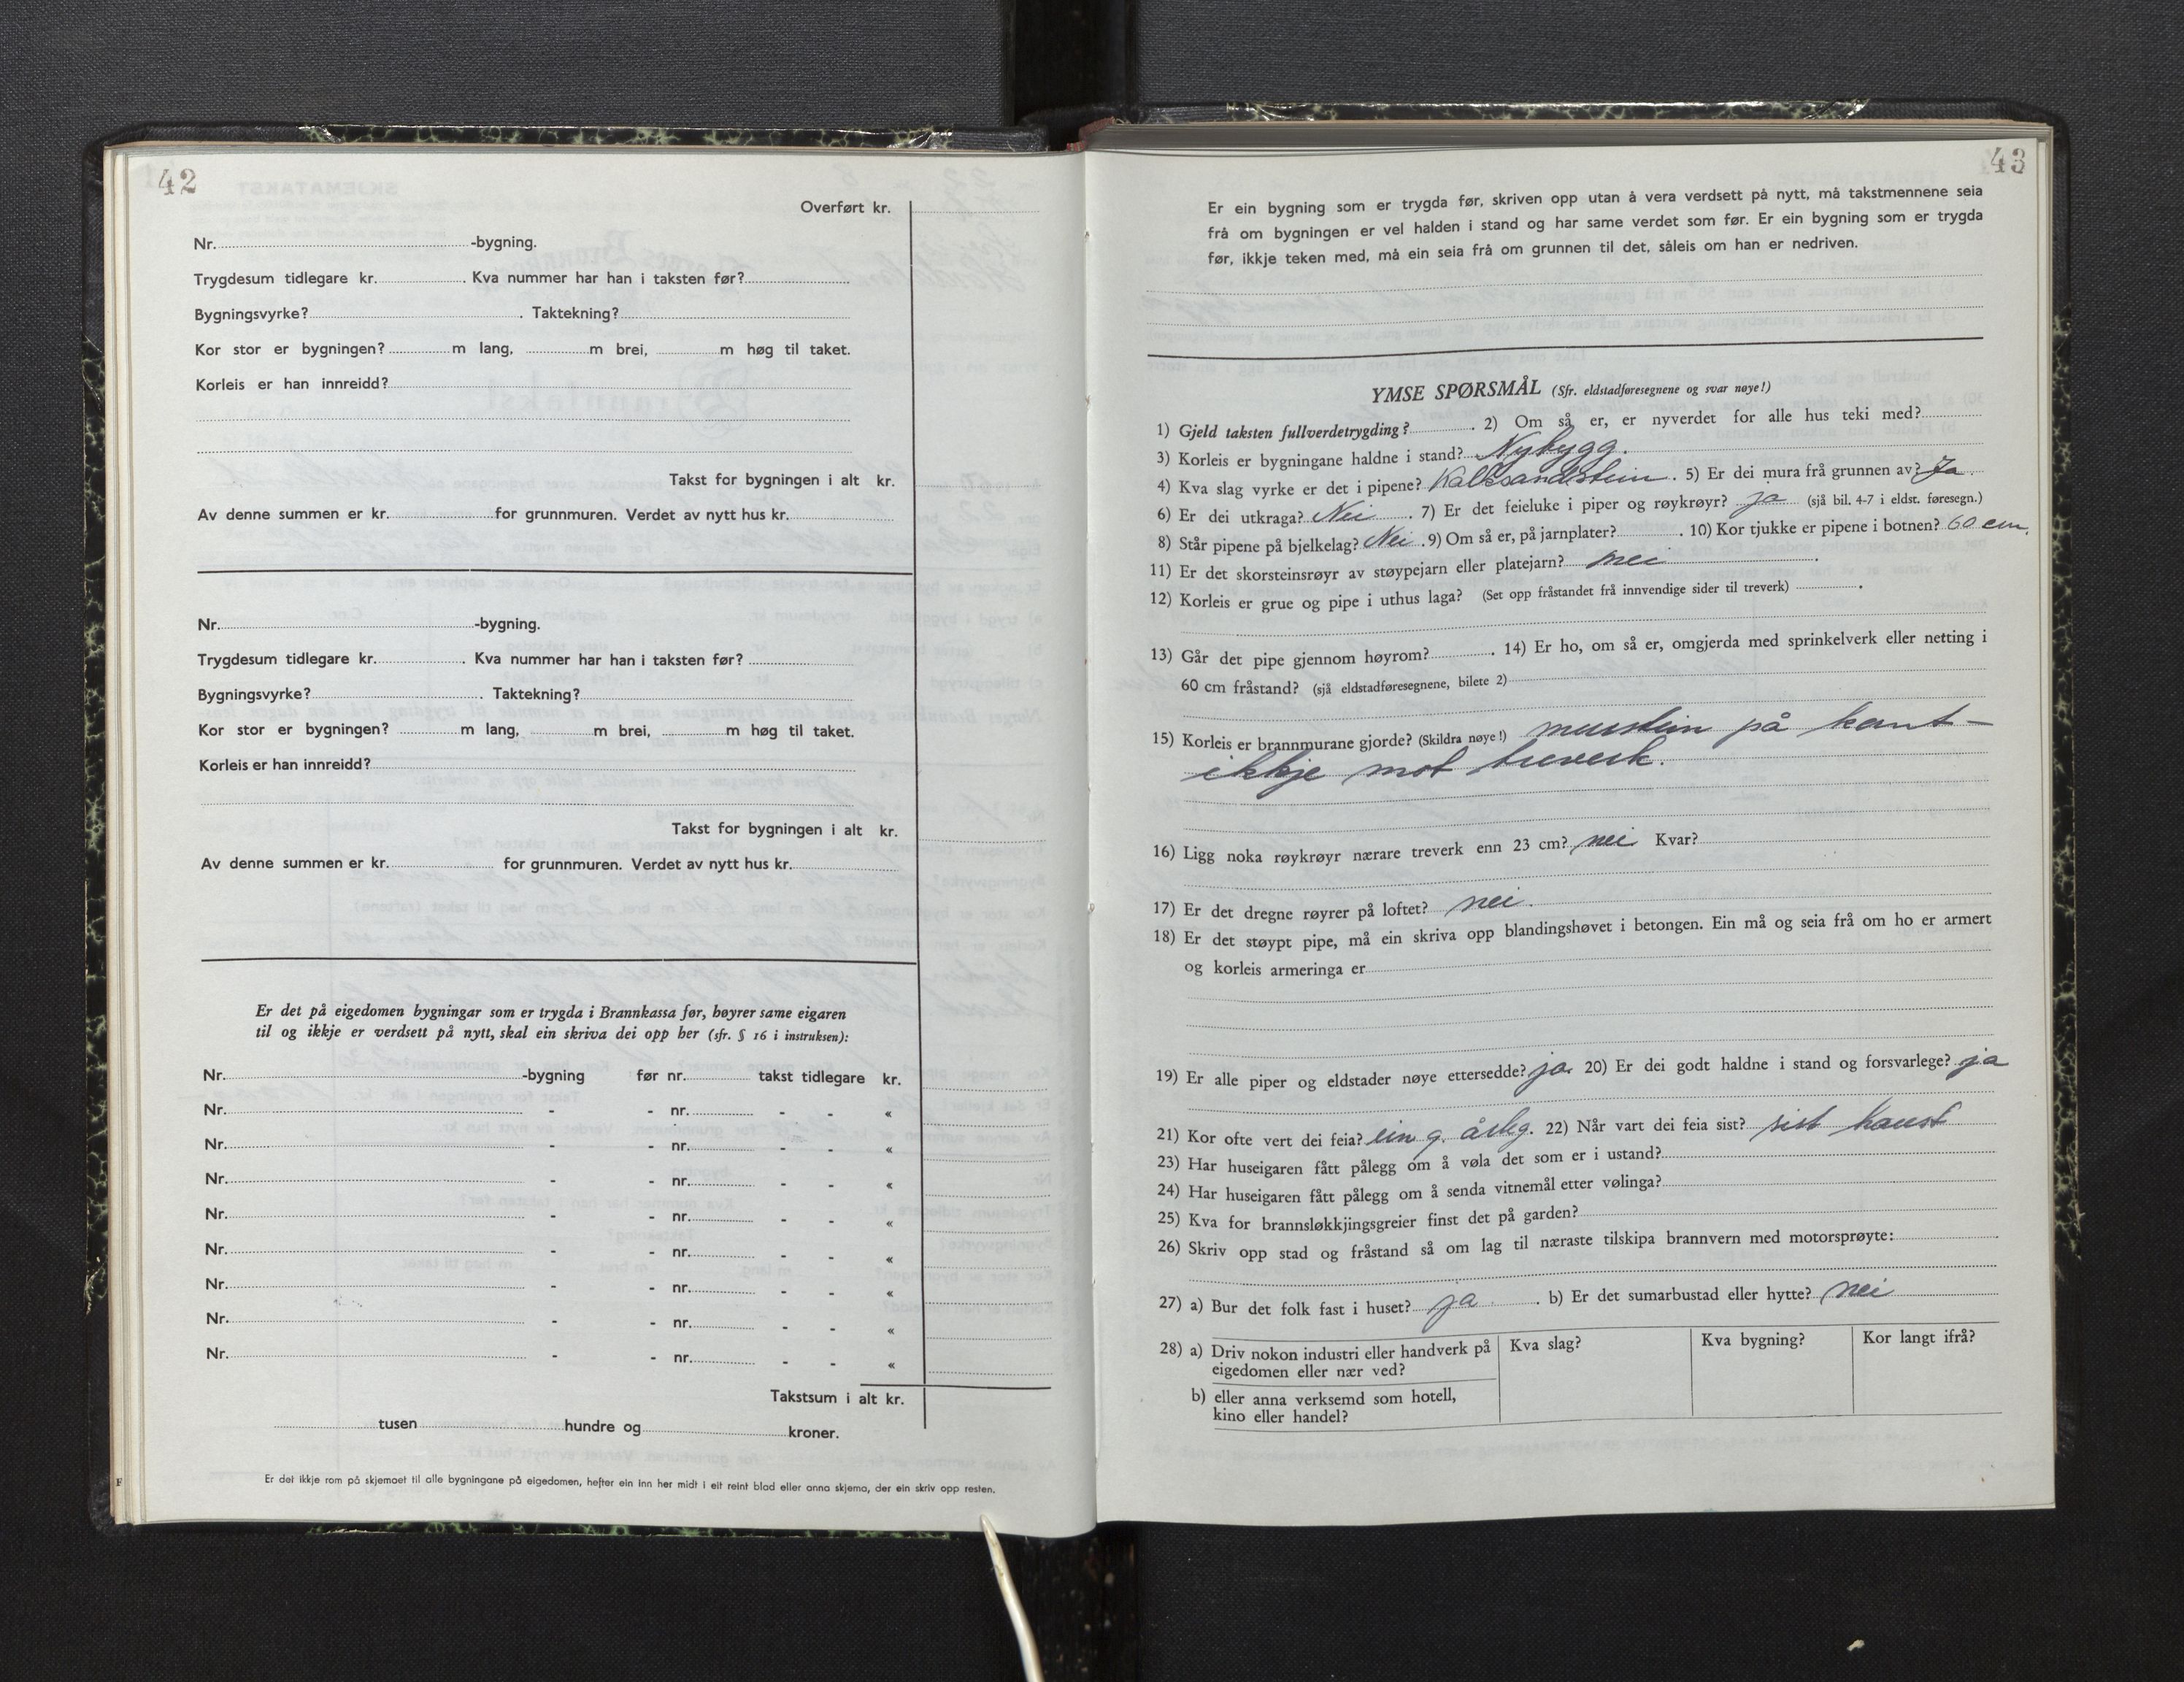 42
Overført kr.
Nr. -bygning.
Trygdesum tidlegare kr. . Kva nummer har han i taksten før?
Bygningsvyrke? . Taktekning?
Kor stor er bygningen? m lang, m brei, m høg til taket.
Korleis er han innreidd?
Takst for bygningen i alt kr.
Av denne summen er kr. for grunnmuren. Verdet av nytt hus kr.
Nr. -bygning.
Trygdesum tidlegare kr. . Kva nummer har han i taksten før?
Bygningsvyrke? . Taktekning?
Kor stor er bygningen? m lang, m brei, m høg til taket.
Korleis er han innreidd?
Takst for bygningen i alt kr.
Av denne summen er kr. for grunnmuren. Verdet av nytt hus kr.
Er det på eigedomen bygningar som er trygda i Brannkassa før, høyrer same eigaren
til og ikkje er verdsett på nytt, skal ein skriva dei opp her (sfr. § 16 i instruksen):
Nr. -bygning før nr. takst tidlegare kr.
Nr. - - nr. - - «
Nr. - - nr. - - «
Nr. - - nr. - - «
Nr. - - nr. - - «
Nr. - - nr. - - «
Nr. - - nr. - - «
Nr. - - nr. - - «
Nr. - - nr. - - «
Takstsum i alt kr.
tusen hundre og kroner.
Er det ikkje rom på skjemaet til alle bygningane på eigedomen, hefter ein inn her midt i eit reint blad eller anna skjema, der ein skriv opp resten.
F
43
Er ein bygning som er trygda før, skriven opp utan å vera verdsett på nytt, må takstmennene seia
frå om bygningen er vel halden i stand og har same verdet som før. Er ein bygning som er trygda
før, ikkje teken med, må ein seia frå om grunnen til det, såleis om han er nedriven.
YMSE SPØRSMÅL (Sfr. eldstadføresegnene og svar nøye!)
1) Gjeld taksten fullverdetrygding? . 2) Om så er, er nyverdet for alle hus teki med?
3) Korleis er bygningane haldne i stand? Nybygg.
4) Kva slag vyrke er det i pipene? Kalksandstein. 5) Er dei mura frå grunnen av? Ja
6) Er dei utkraga? Nei. 7) Er det feieluke i piper og røykrøyr? ja (sjå bil. 4-7 i eldst. føresegn.)
8) Står pipene på bjelkelag? Nei. 9) Om så er, på jarnplater? . 10) Kor tjukke er pipene i botnen? 60 cm.
11) Er det skorsteinsrøyr av støypejarn eller platejarn? nei .
12) Korleis er grue og pipe i uthus laga? (Set opp fråstandet frå innvendige sider til treverk) .
13) Går det pipe gjennom høyrom? . 14) Er ho, om så er, omgjerda med sprinkelverk eller netting i
60 cm fråstand? (sjå eldstadføresegnene, bilete 2)
15) Korleis er brannmurane gjorde? (Skildra nøye!) murstein på kant -
ikkje mot treverk.
16) Ligg noka røykrøyr nærare treverk enn 23 cm? nei Kvar?
17) Er det dregne røyrer på loftet? nei.
18) Er det støypt pipe, må ein skriva opp blandingshøvet i betongen. Ein må og seia frå om ho er armert
og korleis armeringa er
19) Er alle piper og eldstader nøye ettersedde? ja. 20) Er dei godt haldne i stand og forsvarlege? ja
21) Kor ofte vert dei feia? ein g. årleg. 22) Når vart dei feia sist? sist haust
23) Har huseigaren fått pålegg om å vøla det som er i ustand?
24) Har huseigaren fått pålegg om å senda vitnemål etter vølinga?
25) Kva for brannsløkkjingsgreier finst det på garden?
26) Skriv opp stad og fråstand så om lag til næraste tilskipa brannvern med motorsprøyte:
27) a) Bur det folk fast i huset? ja . b) Er det sumarbustad eller hytte? nei
28) a) Driv nokon industri eller handverk på Kva slag? Kva bygning? Kor langt ifrå?
eigedomen eller nær ved?
b) eller anna verksemd som hotell,
kino eller handel?